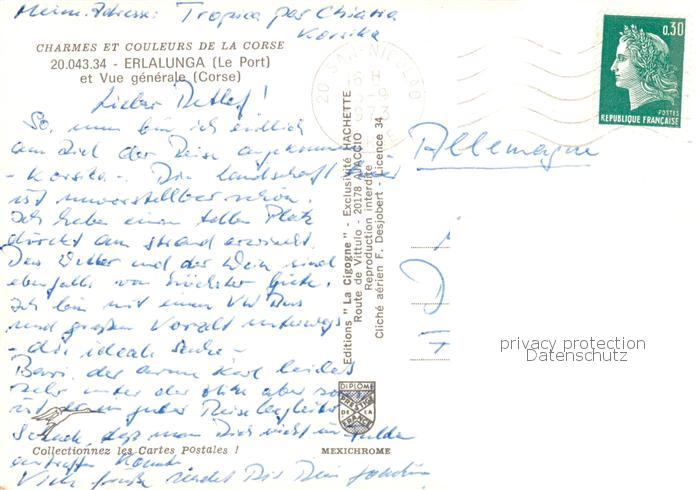 Meine Adresse: Tropica per Chiatra
Korsika
CHARMES ET COULEURS DE LA CORSE
20.043.34 - ERLALUNGA (Le Port)
et Vue générale (Corse)
Lieber Detlef!
So, nun bin ich endlich
am Ziel der Reise angekommen
- Korsika -. Die Landschaft hier
ist unvorstellbar schön.
Ich habe einen tollen Platz
direkt am Strand erwischt.
Das Wetter und der Wein sind
ebenfalls von höchster Güte.
Ich bin mit einem VW Bus
und großem Vorzelt unterwegs
- die ideale Sache -
der arme Kerl leidet
sehr unter der Hitze aber
ist er ein guter Reisebegleiter
Schade, daß man Dich nicht in Fulda
antreffen konnte
Viele Grüße sendet Dir Dein Joachim
Collectionnez les Cartes Postales !
MEXICHROME
DIPLOME
PRESTIGE
DE LA
FRANCE
Editions "La Cigogne" - Exclusivité HACHETTE
Route de Vittulo - 20178 AJACCIO
Reproduction interdite
Cliché aérien F. Desjobert - Licence 34
0,30
POSTES
REPUBLIQUE FRANÇAISE
Allemagne
privacy protection
Datenschutz